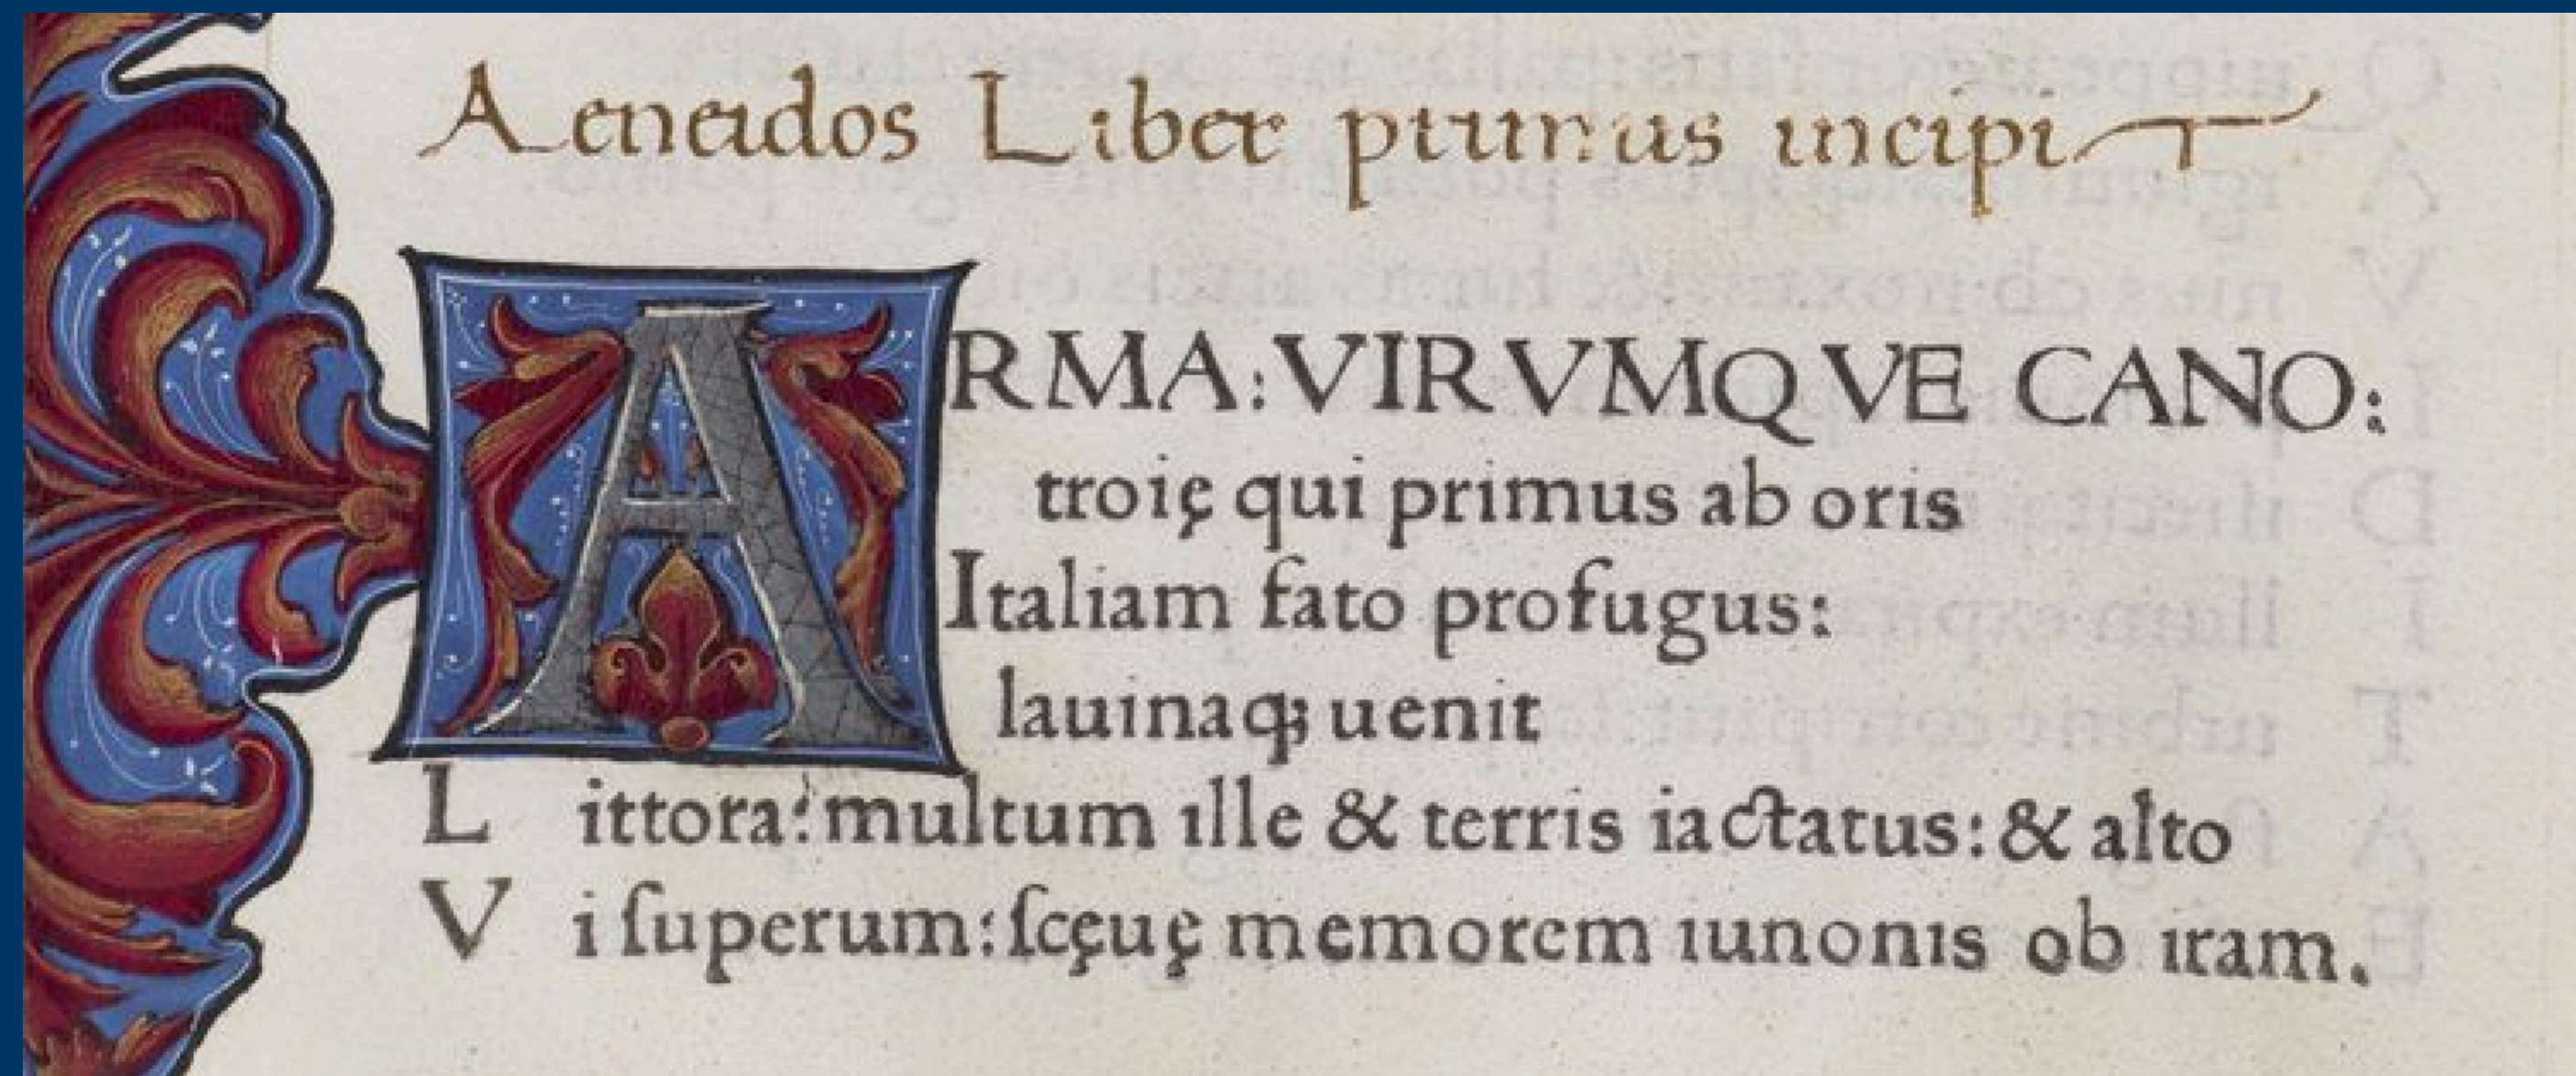 Aeneidos Liber primus incipit
ARMA: VIRVMQVE CANO:
troię qui primus ab oris
Italiam fato profugus:
lauinaq; uenit
Littora: multum ille & terris iactatus: & alto
Vi ſuperum: ſcęuę memorem iunonis ob iram.